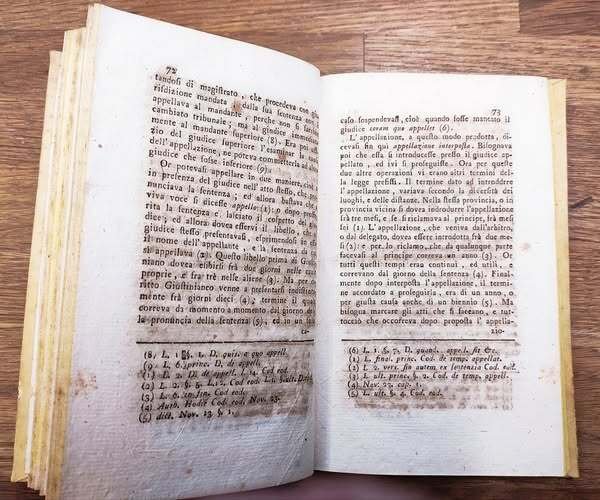 72
tandosi di magistrato, che procedeva con giu-
risdizione mandata, dalla sua sentenza
appellava al mandante, perchè non si
cambiato tribunale; ma al giudice
mente al mandante superiore (8). Era poi
zio del giudice superiore l'esaminare la
dell'appellazione, ne poteva commetterla
giudice che fosse inferiore (9).
Or potevasi appellare in due maniere,
in presenza del giudice nell'atto stesso, che
nunciava la sentenza; ed allora bastava che
viva voce si dicesse appello (1): o dopo
rita la sentenza e lasciato il cospetto del
dice; ed allora dovea esservi il libello, che
giudice stesso presentavasi, esprimendosi in
il nome dell'appellante, e la sentenza
si appellava (2) Questo libello prima di Giusti-
niano dovea esibirsi frà due giorni nelle cause
proprie, e frà trè nelle aliene (3) Ma per
ritto Giustinianeo venne a presentarsi
mente frà giorni dieci (4); termine il quale
correva da momento a momento dal giorno
la pronuncia della sentenza (5), ed in un
ca-
(8) L. 1 §. 1. D. quis. a quo appell.
(9) L. 6. princ. D. de appell.
(1) L. 2 D. de appell. L. Cod. eod.
(2) L. 2. §. 5. Cod eod. L. 1. §. ult. D.
(3) L. 6. in fin. Cod. eod.
(4) Auth. Hodie Cod. eod. Nov. 23.
(5) dict. Nov. 23 §. 1.
73
caso sospendevasi, cioè quando fosse mancato il
giudice coram quo appellet (6).
L'appellazione, a questo modo prodotta, di-
cevasi fin qui appellazione interposta. Bisognava
poi che essa si introducesse presso il giudice ap-
pellato, ed ivi si proseguisse. Ora per queste
due altre operazioni vi erano altri termini del-
la legge prefissi. Il termine dato ad introdurre
l'appellazione, variava secondo la diversità dei
luoghi, e delle distanze. Nella stessa provincia, o in
provincia vicina si dovea indrodurre l'appellazione
frà trè mesi, e se si riclamava al principe, frà sei
mesi (1). L'appellazione, che veniva dall'arbitro
o dal delegato, dovea essere introdotta frà due me-
si (2): e per lo riclamo, che da qualunque parte
facevasi al principe correva un anno (3). Or
tutti questi tempi erano continui, ed utili, e
correvano dal giorno della sentenza (4). Final-
mente dopo interposta l'appellazione, il termine
accordato a proseguirla, era di un anno, o
per giusta causa anche di un biennio (5). Ma
bisogna marcare gli atti che si faceano, e tut-
tocciò che occorreva dopo proposta l'appella-
zio-
(6) L. 1. §. 7. D. quand. appell. sit &c.
(1) L. final. princ. Cod. de temp. appellat.
(2) L. 2. vers. sin autem ex sententia Cod. eod.
(3) L. ult. princ. §. 2. Cod. de temp. appellat.
(4) Nov. 23. cap. 1.
(5) L. ult. §. 4. Cod. eod.